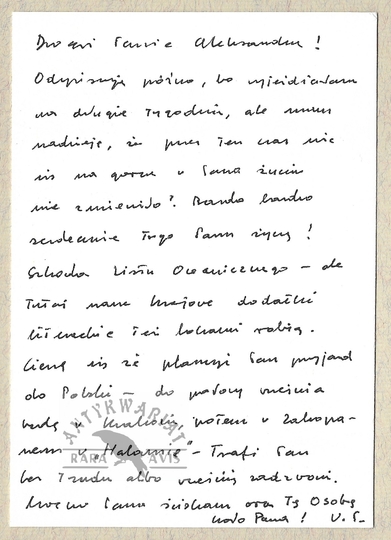 Drogi Panie Aleksandrze!
Odpisuję późno, bo wyjeżdżałam
na długie tygodnie, ale mam
nadzieję, że przez ten czas nic
się na gorsze w Pana życiu
nie zmieniło? Bardzo bardzo
serdecznie tego Panu życzę!
Szkoda Listu Oceanicznego – ale
tutaj nasze krajowe dodatki
literackie też bokami robią.
Cieszę się że planuje Pan przyjazd
do Polski – do połowy września
będę w Krakowie, potem w Zakopa-
nem w „Halamie" – Trafi Pan
bez trudu albo wcześniej zadzwoni.
Mocno Pana ściskam oraz Tę Osobę
koło Pana! W. S.
ANTYKWARIAT
RARA AVIS